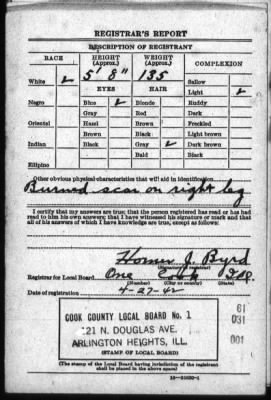 REGISTRAR'S REPORT
DESCRIPTION OF REGISTRANT
RACE HEIGHT (Approx.) WEIGHT (Approx.) COMPLEXION
5' 8" 135 Sallow
White ✓ EYES HAIR Light ✓
Negro Blue ✓ Blonde Ruddy
Gray Red Dark
Oriental Hazel Brown Freckled
Brown Black Light brown
Indian Black Gray ✓ Dark brown
Bald Black
Filipino
Other obvious physical characteristics that will aid in identification
Burned scar on right leg
I certify that my answers are true; that the person registered has read or has had read to him his own answers; that I have witnessed his signature or mark and that all of his answers of which I have knowledge are true, except as follows:
Homer J. Byrd
(Signature of registrar)
Registrar for Local Board One Cook Ill.
(Number) (City or county) (State)
Date of registration 4-27-42
COOK COUNTY LOCAL BOARD No. 1
121 N. DOUGLAS AVE.
ARLINGTON HEIGHTS, ILL.
61
031
001
(STAMP OF LOCAL BOARD)
(The stamp of the Local Board having jurisdiction of the registrant shall be placed in the above space)